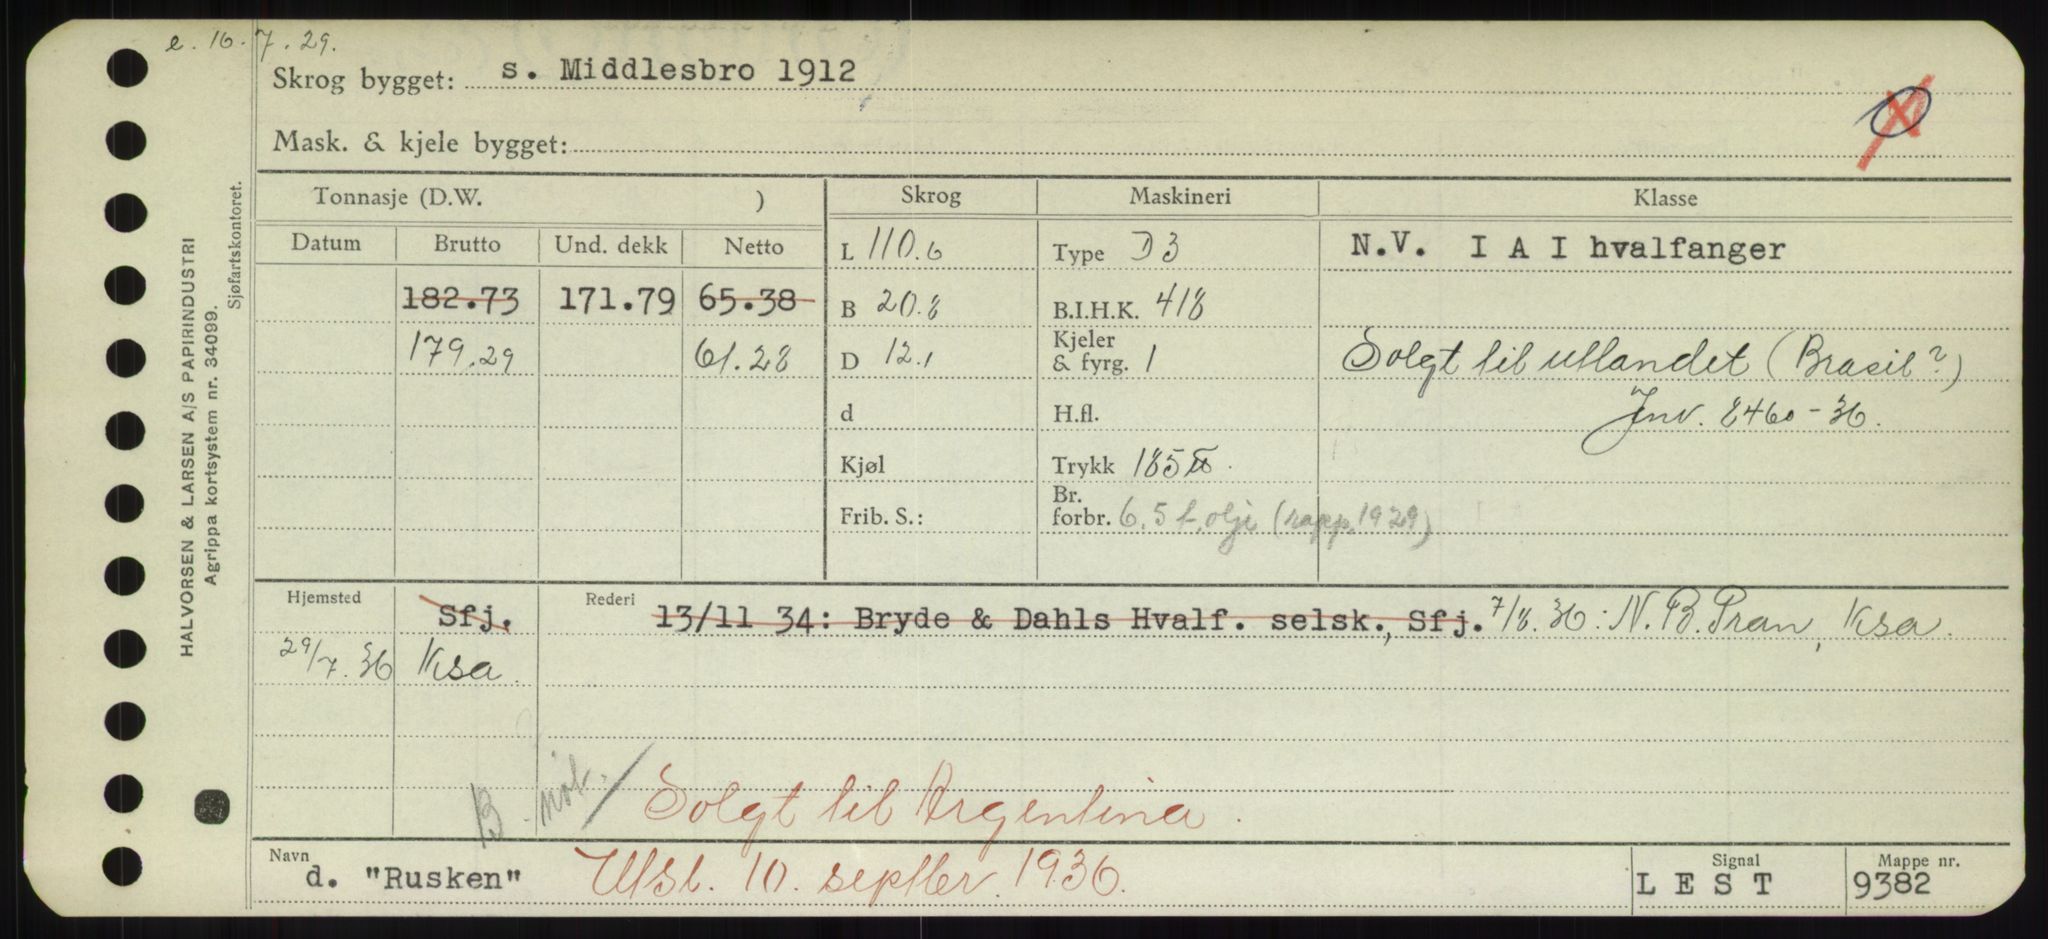 e. 16.7.29.
Skrog bygget: s. Middlesbro 1912
Mask. & kjele bygget:
Tonnasje (D.W. ) Skrog Maskineri Klasse
Datum Brutto Und. dekk Netto L 110.6 Type D3 N.V. I A I hvalfanger
182.73 171.79 65.38 B 20.8 B.I.H.K. 418
179.29 61.28 D 12.1 Kjeler & fyrg. 1 Solgt til utlandet (Brasil?)
d H.fl. Jnv. 2460-36.
Kjøl Trykk 185 ℔.
Frib. S.: Br. forbr. 6,5 t. olje (rapp. 1929)
Hjemsted Sfj. Rederi 13/11 34: Bryde & Dahls Hvalf. selsk., Sfj. 7/8.36: N.B. Pran, Ksa.
29/7.36 Ksa.
B. not. Solgt til Argentina.
Navn d. "Rusken" Utsl. 10. septbr. 1936. Signal LEST Mappe nr. 9382
HALVORSEN & LARSEN A/S PAPIRINDUSTRI
Agrippa kortsystem nr. 34099.
Sjøfartskontoret.